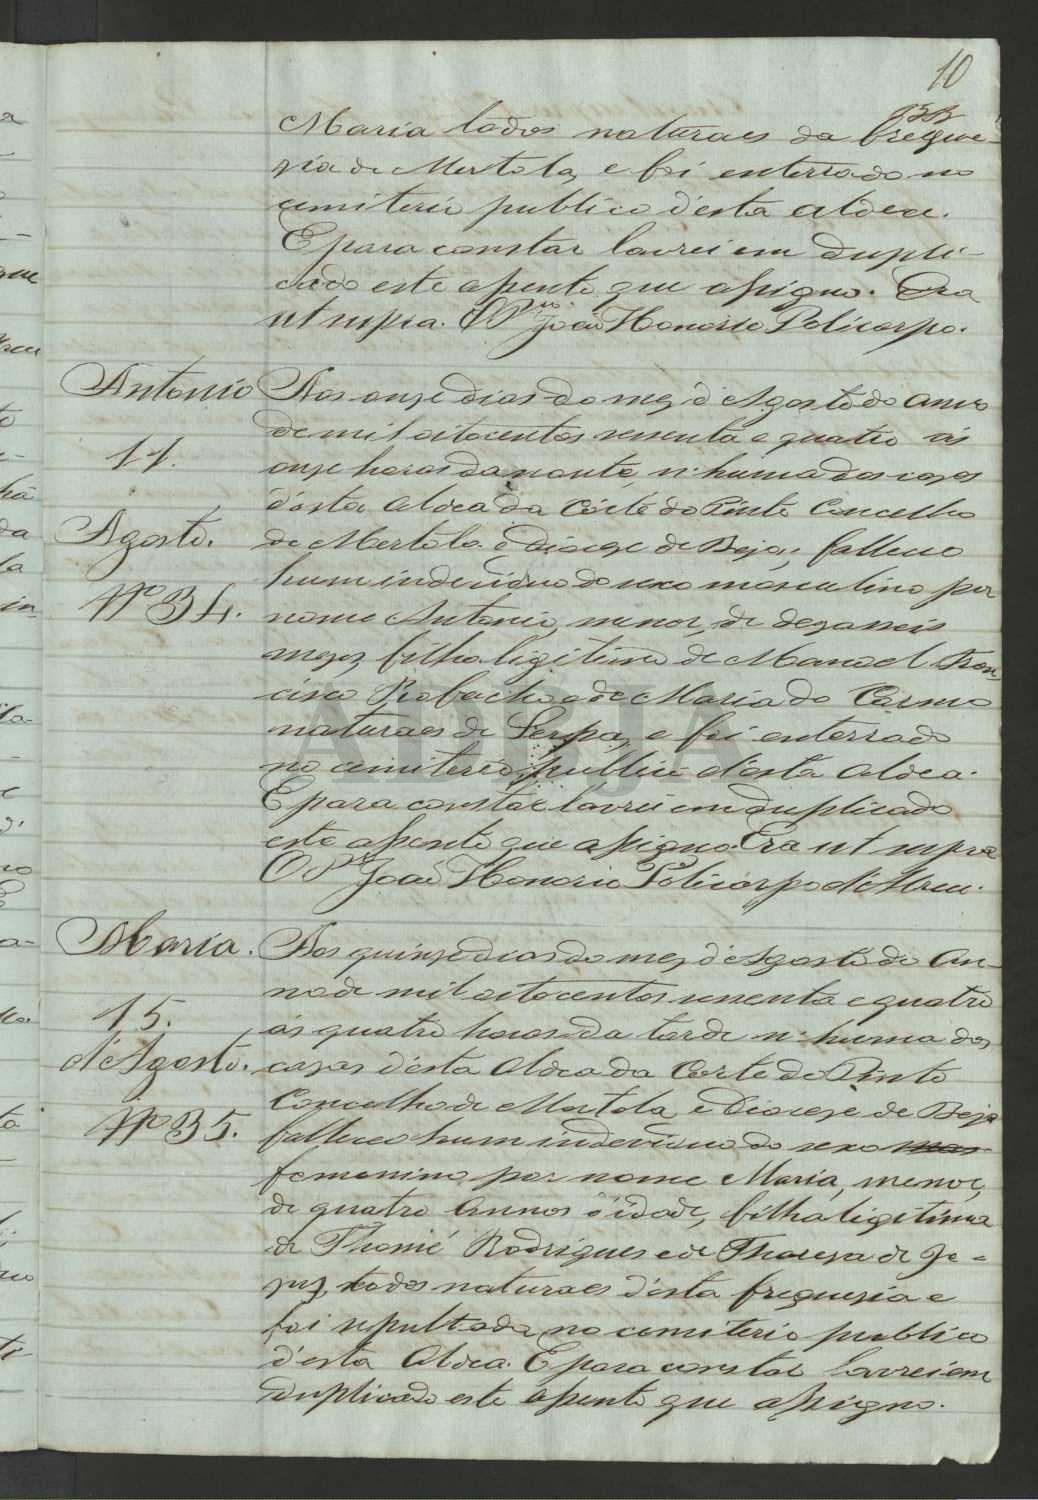 10
Maria todos naturaes da fregue-
zia de Mertola, e foi enterrado no
cemiterio publico d'esta aldea.
E para constar lavrei em dupli-
cado este assento que assigno. Era
ut supra. O P.or João Honorio Policarpo.
Antonio
11.
Agosto.
Nº 34.
Aos onze dias do mez d'Agosto do anno
de mil oitocentos sessenta e quatro ás
onze horas da noute, n'huma das cazas
d'esta aldea da Córte do Pinto Concelho
de Mertola e Dioceze de Beja, falleceo
hum individuo do sexo masculino por
nome Antonio, menor, de dezasseis
mezes, filho ligitimo de Manoel Fran-
cisco e de Maria do Carmo
naturaes de Serpa, e foi enterrado
no cemiterio publico d'esta aldea.
E para constar lavrei em duplicado
este assento que assigno. Era ut supra
O P.or João Honorio Policarpo d'Abreu.
Maria.
15.
d'Agosto.
Nº 35.
Aos quinze dias do mez d'Agosto do an-
no de mil oitocentos sessenta e quatro
ás quatro horas da tarde n'huma das
cazas d'esta aldea da Corte do Pinto
Concelho de Mertola, e Dioceze de Beja
falleceo hum individuo do sexo mas
femenino, por nome Maria, menor,
de quatro annos d'idade, filha ligitima
de Thomé Rodrigues e de Thereza de Je-
zuz, todos naturaes d'esta freguezia e
foi sepultada no cemiterio publico
d'esta aldea. E para constar lavrei em
duplicado este assento que assigno.